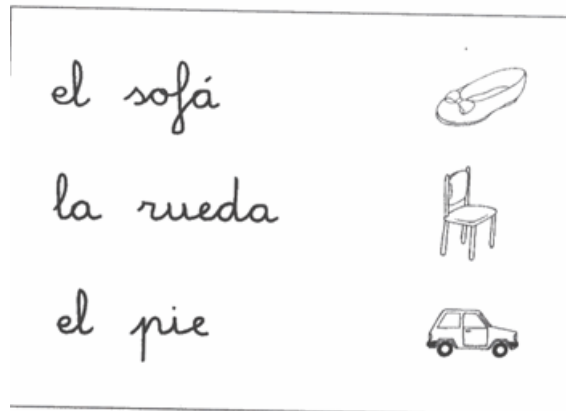 el sofá
la rueda
el pie